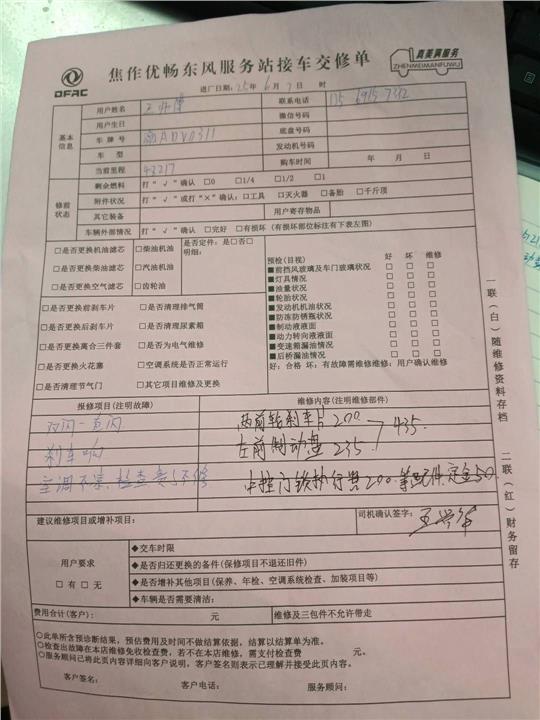 DFAC
焦作优畅东风服务站接车交修单
真美满服务
ZHENMEIMANFUWU
进厂日期:25年6月7日 时
基本信息
用户姓名 联系电话
用户生日 微信号码
车牌号 底盘号码
车型 发动机号码
当前里程 购车时间 年 月 日
修前状态
剩余燃料 打“√”确认 □0 □1/4 □1/2 □1
附件状况 打“√”或打“×”确认:□工具 □灭火器 □备胎 □千斤顶
其它装备 用户寄存物品
车辆外部情况 打“√”确认 □完好 □有损坏(有损坏部位标注有下表左图)
□是否更换机油滤芯 □柴油机油 是否定件:是□否□
明细:
□是否更换柴油滤芯 □汽油机油
□是否更换空气滤芯 □齿轮油
□是否更换前刹车片 □是否清理排气筒
□是否更换后刹车片 □是否清理尿素箱
□是否更换离合三件套 □是否为电气维修
□是否更换火花塞 □空调系统是否正常运行
□是否清理节气门 □其它项目维修及更换
预检(目视) 好 坏 维修
■前挡风玻璃及车门玻璃状况 □ □ □
■灯具情况 □ □ □
■油量状况 □ □ □
■轮胎状况 □ □ □
■发动机机油状况 □ □ □
■防冻防锈瓶状况 □ □ □
■制动液液面 □ □ □
■动力转向液液面 □ □ □
■变速箱漏油情况 □ □ □
■后桥漏油情况 □ □ □
好:合格 坏:有故障需维修维修:用户确认维修
报修项目(注明故障) 维修内容(注明维修部件)
双闪一直闪
刹车响
空调不凉
两前轮刹车片200
左前制动盘235
435
中控门锁执行
200
定金50
建议维修项目或增补项目: 司机确认签字:
用户要求
□有 □无
◆交车时限
◆是否归还更换的备件(保修项目不退还旧件)
◆是否增补其他项目(保养、年检、空调系统检查、加装项目等)
◆车辆是否需要清洁:
费用合计(客户): 元 维修及三包件不允许带走
○此单所含预诊断结果,预估费用及时间不做结算依据,结算以结算单为准。
○检查出故障在本店维修免收检查费,若不在本店维修,需支付检查费 元。
○服务顾问已将此页内容详细向客户说明,客户签名则表示已理解并接受此页内容。
客户签名: 客户电话: 服务顾问:
一联(白)随维修资料存档
二联(红)财务留存